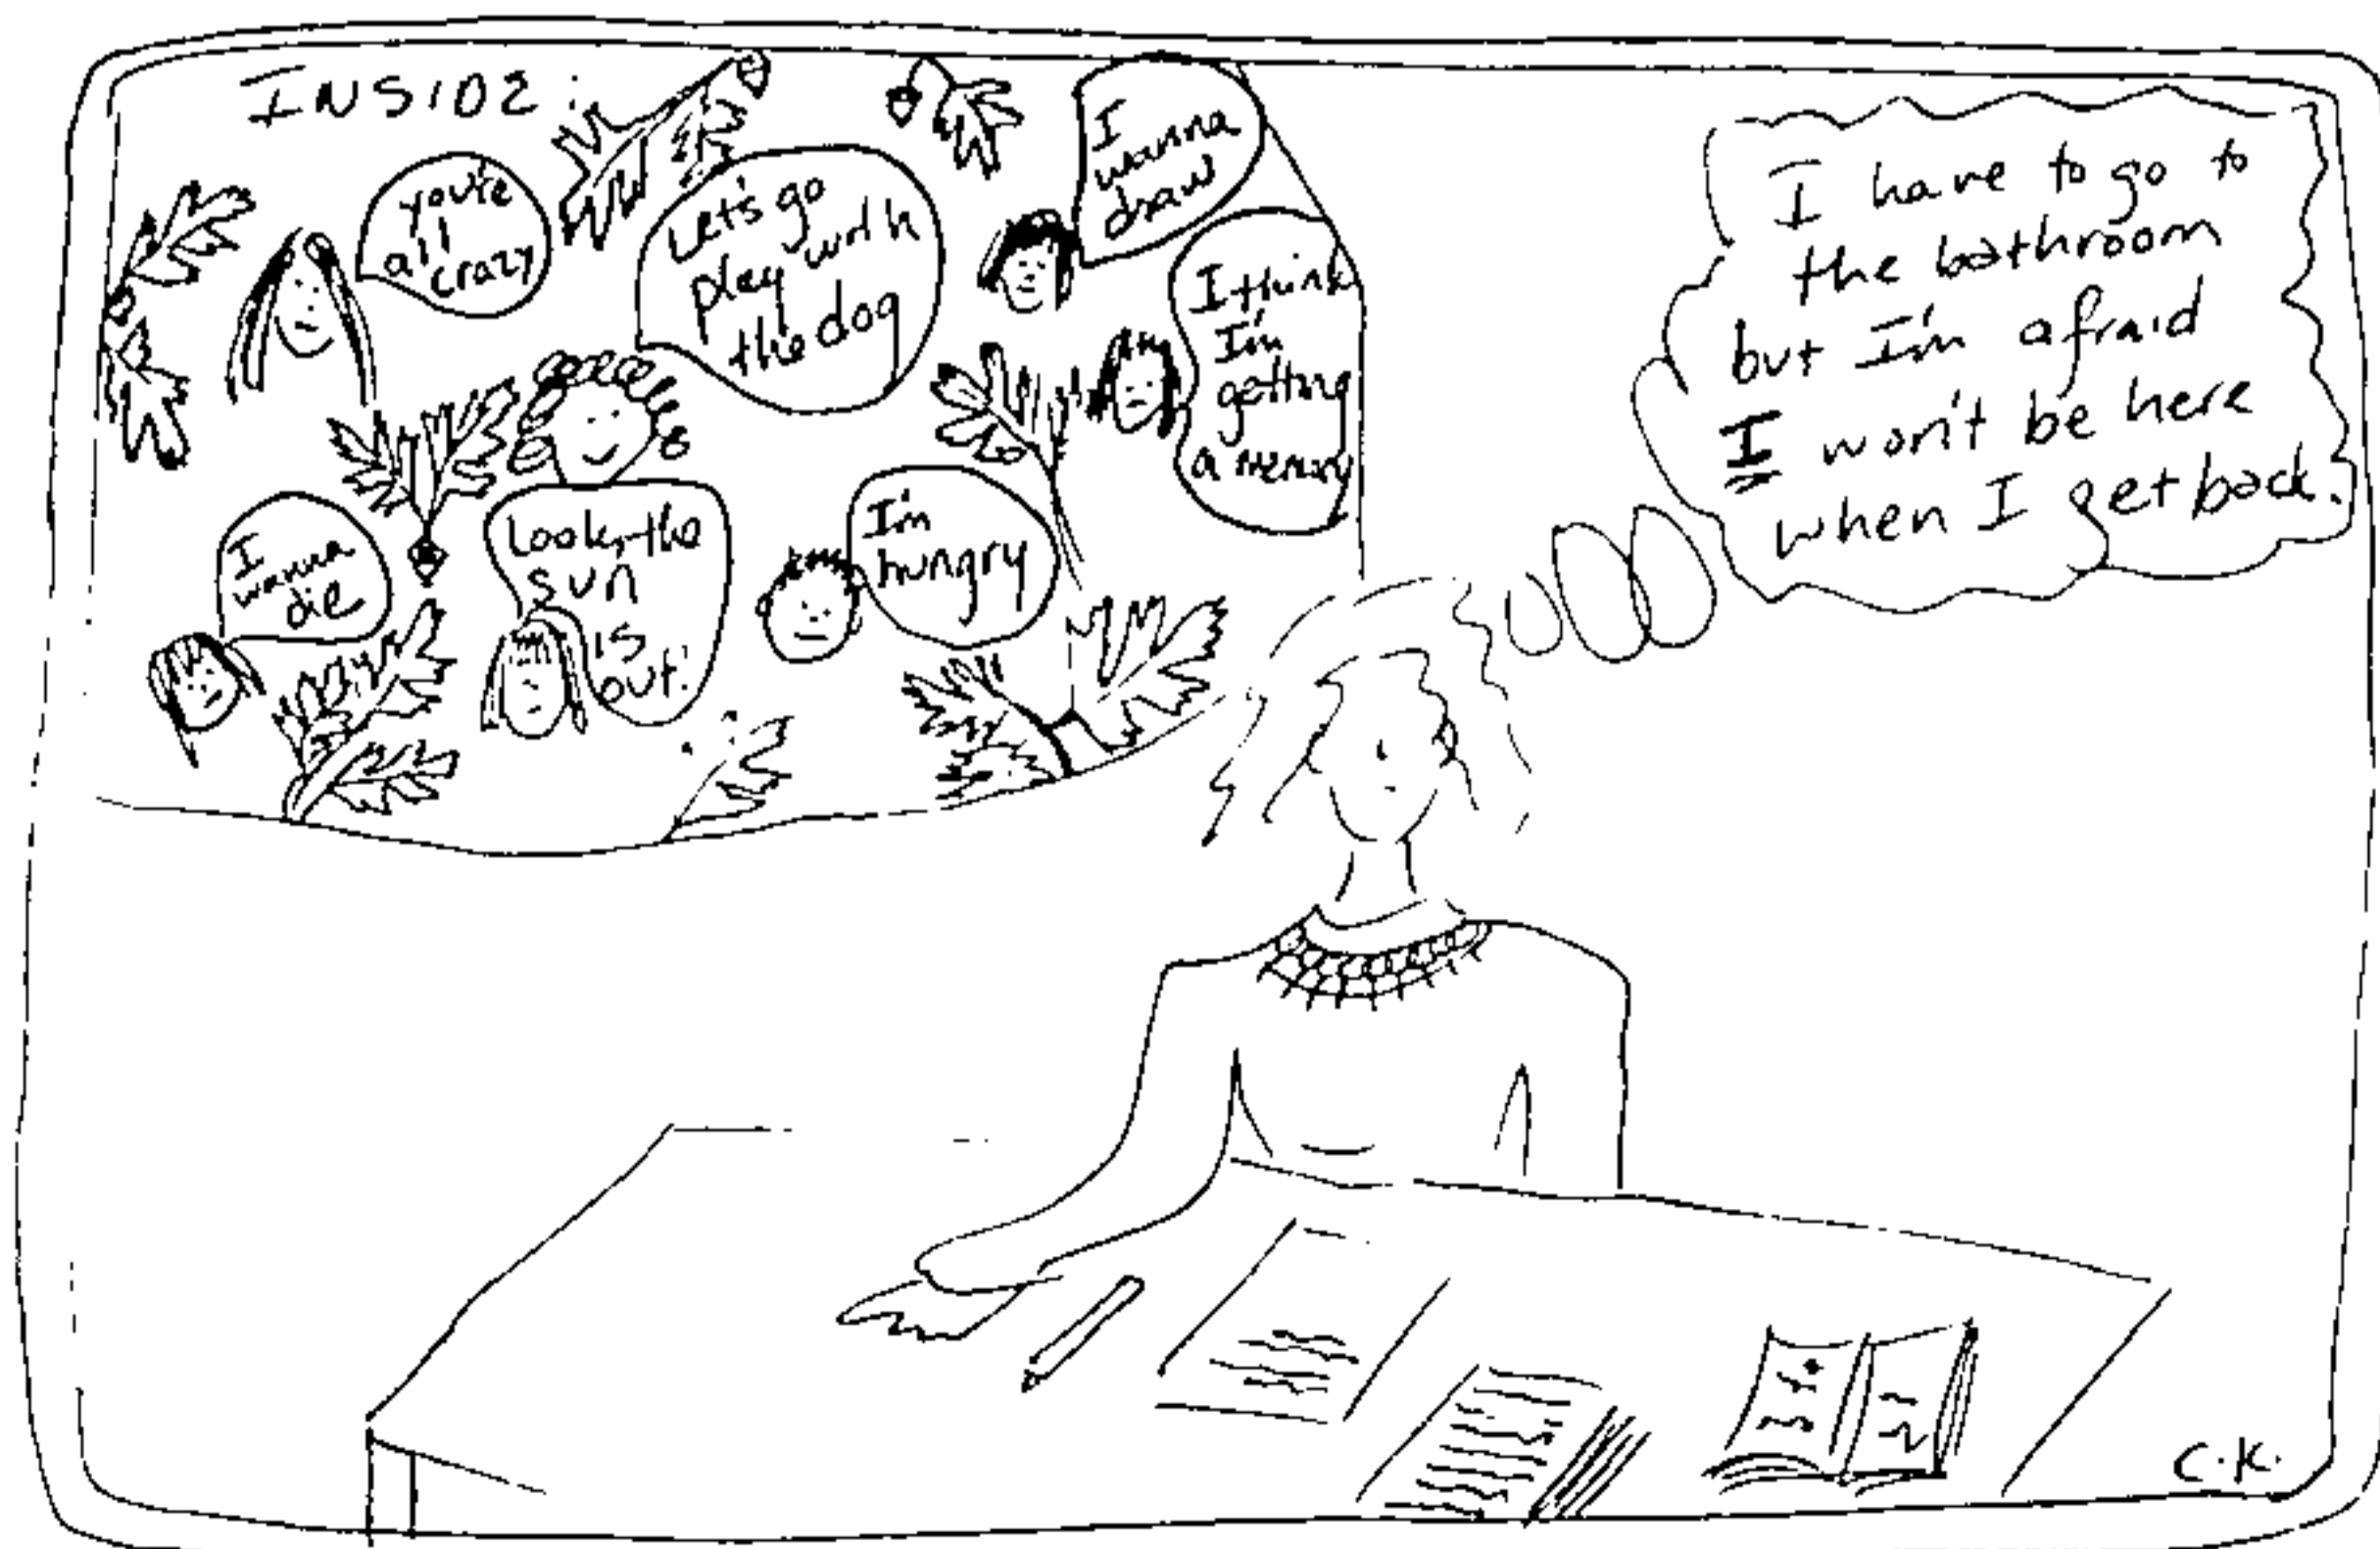 INSIDE:
you're
all
crazy
Let's go
play with
the dog
I
wanna
draw
I think
I'm
getting
a memory
I
wanna
die
Look, the
sun
is
out!
I'm
hungry
I have to go to
the bathroom
but I'm afraid
I won't be here
when I get back.
C.K.